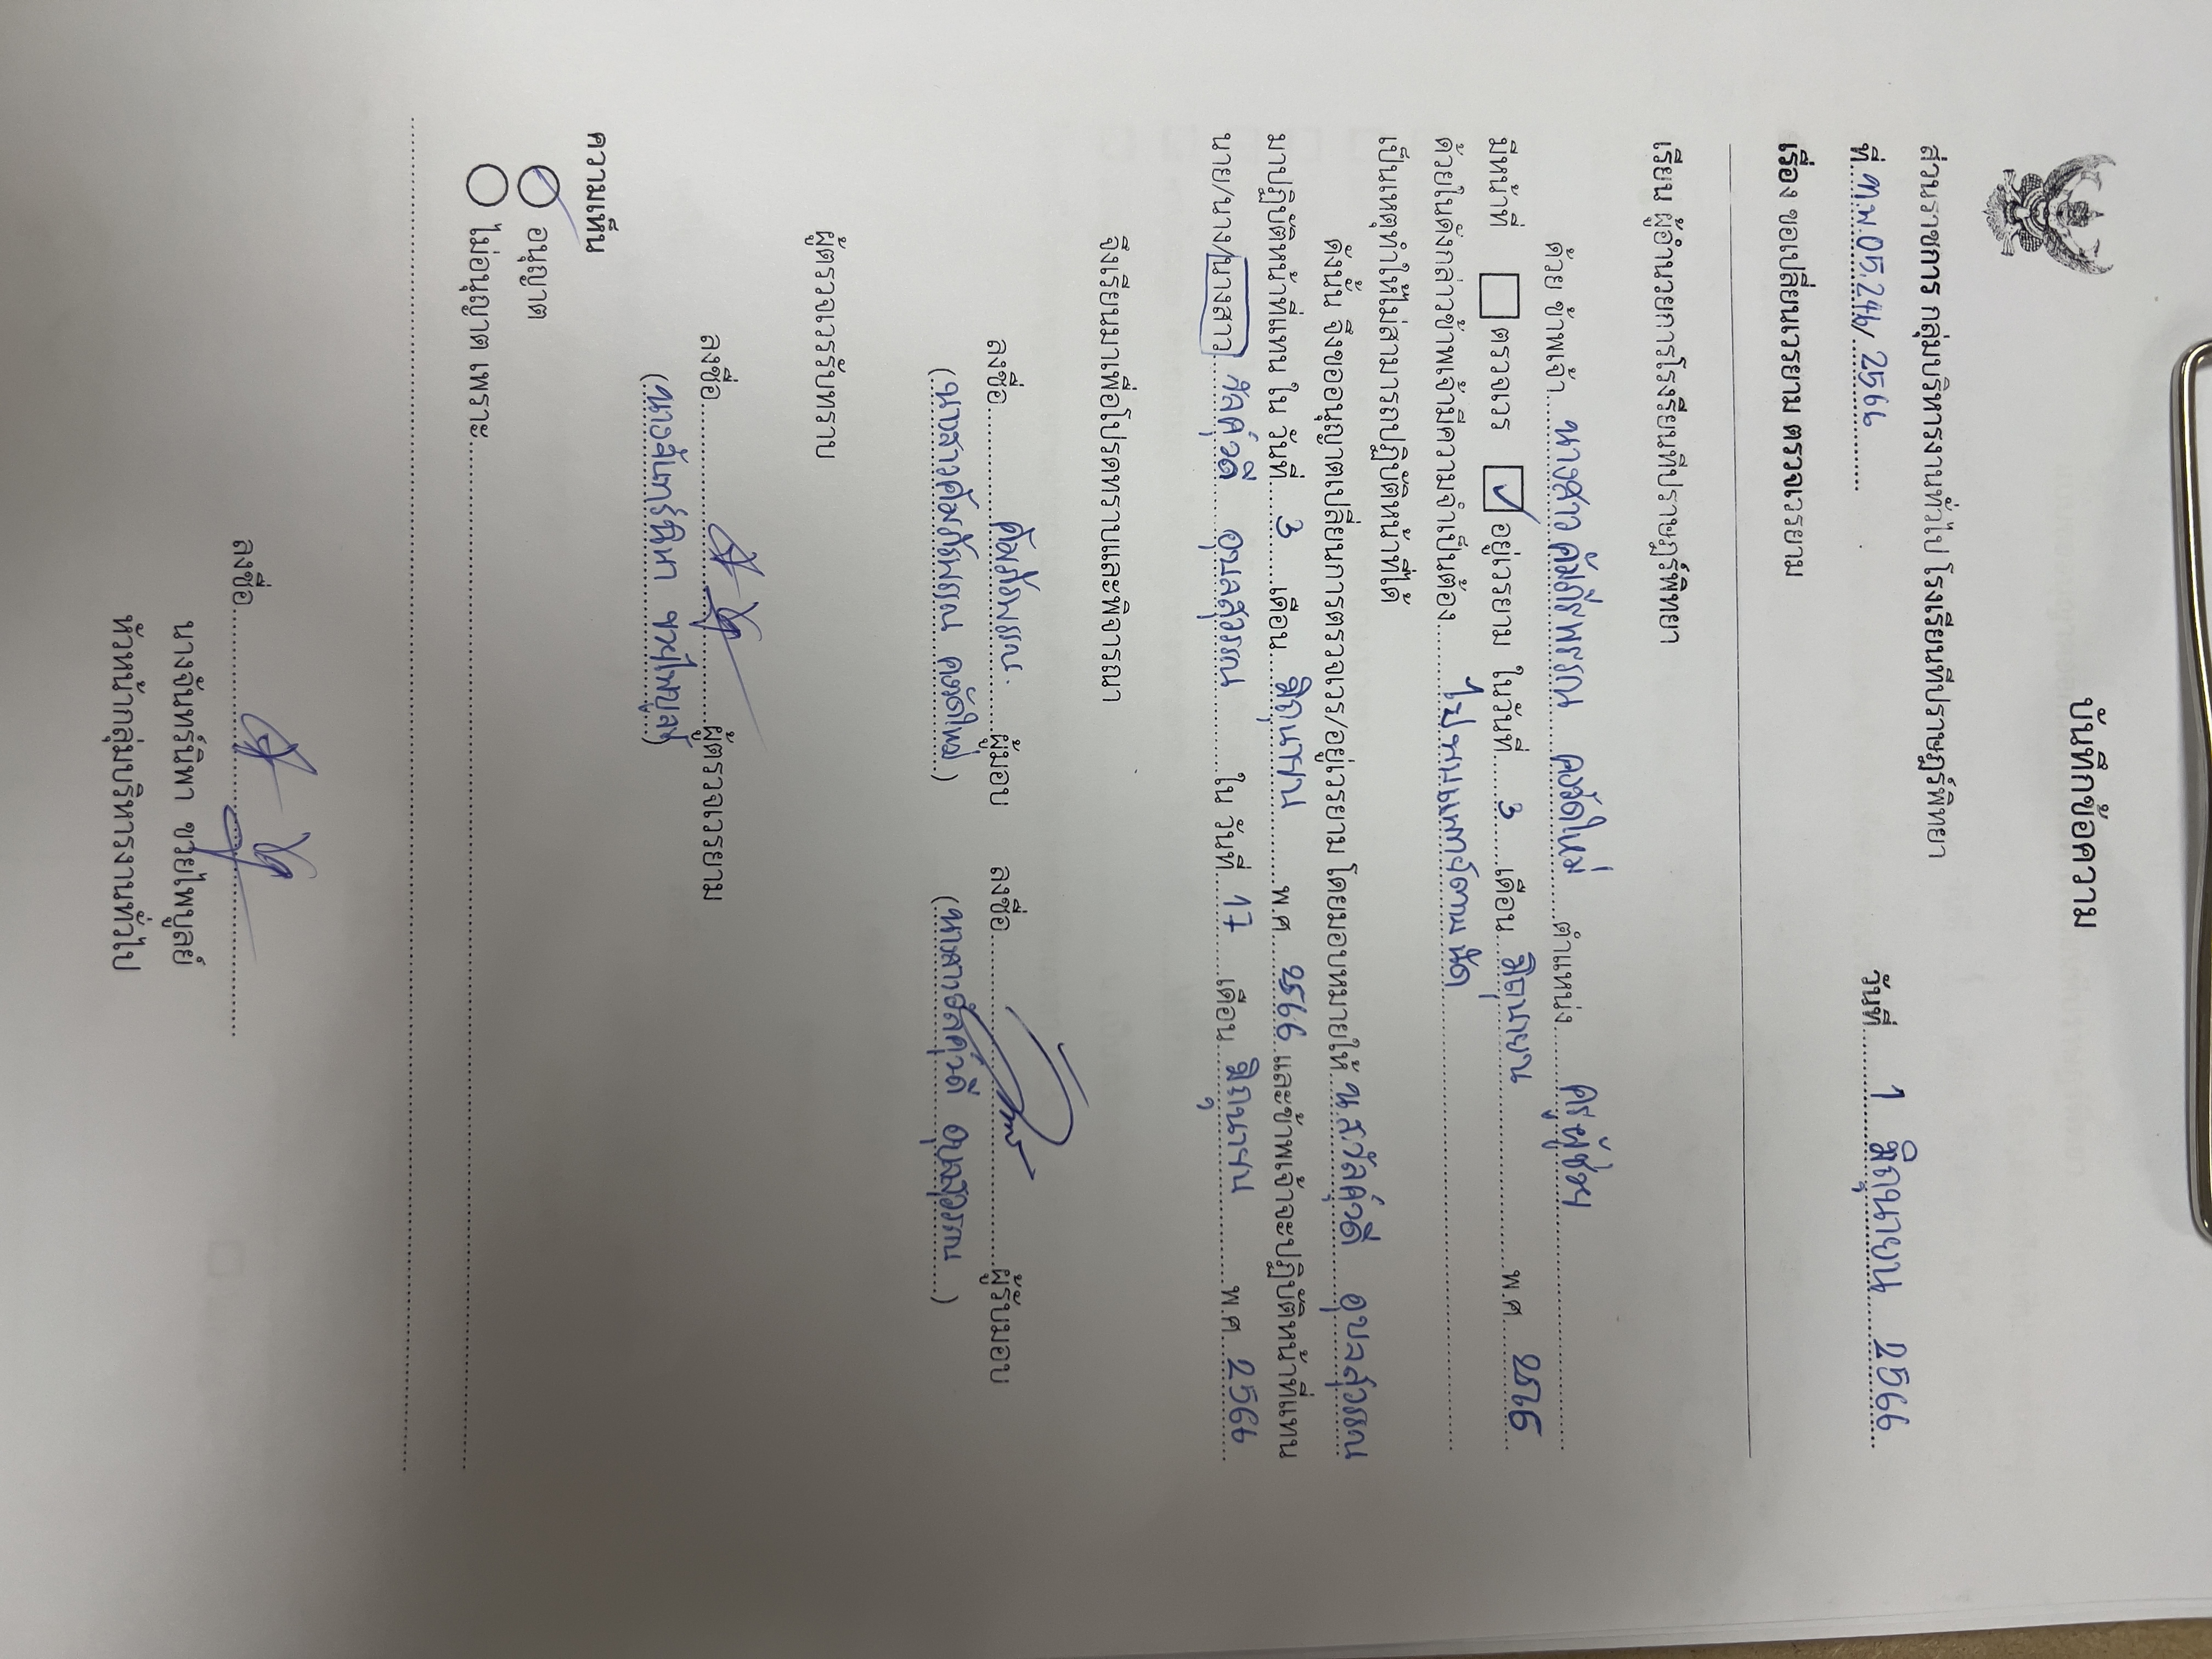 บันทึกข้อความ
ส่วนราชการ กลุ่มบริหารงานทั่วไป โรงเรียนทีปราษฎร์พิทยา
ที่ ทพ.0524๖/2566 วันที่ 1 มิถุนายน 2566
เรื่อง ขอเปลี่ยนเวรยาม ตรวจเวรยาม
เรียน ผู้อำนวยการโรงเรียนทีปราษฎร์พิทยา
ด้วย ข้าพเจ้า นางสาว ตำแหน่ง ครูผู้ช่วย
มีหน้าที่ ตรวจเวร ✓ อยู่เวรยาม ในวันที่ 3 เดือน มิถุนายน พ.ศ. 2566
ด้วยในดังกล่าวข้าพเจ้ามีความจำเป็นต้อง ไปพบแพทย์ตามนัด
เป็นเหตุทำให้ไม่สามารถปฏิบัติหน้าที่ได้
ดังนั้น จึงขออนุญาตเปลี่ยนการตรวจเวร/อยู่เวรยาม โดยมอบหมายให้ น.ส.วัลค์วดี อุบลสุวรรณ
มาปฏิบัติหน้าที่แทน ใน วันที่ 3 เดือน มิถุนายน พ.ศ. 2566 และข้าพเจ้าจะปฏิบัติหน้าที่แทน
นาย/นาง/นางสาว วัลค์วดี อุบลสุวรรณ ใน วันที่ 17 เดือน มิถุนายน พ.ศ. 2566
จึงเรียนมาเพื่อโปรดทราบและพิจารณา
ลงชื่อ ผู้มอบ ลงชื่อ ผู้รับมอบ
(นางสาว) (นางสาววัลค์วดี อุบลสุวรรณ)
ผู้ตรวจเวรรับทราบ
ลงชื่อ ผู้ตรวจเวรยาม
(นางจันทร์นิพา ช่วยไพบูลย์)
ความเห็น
อนุญาต
ไม่อนุญาต เพราะ
ลงชื่อ
นางจันทร์นิพา ช่วยไพบูลย์
หัวหน้ากลุ่มบริหารงานทั่วไป